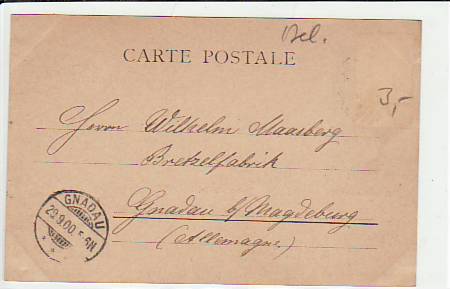 Bel.
CARTE POSTALE
3,-
Herrn Wilhelm Maasberg
Bretzelfabrik
Gnadau b/Magdeburg
(Allemagne.)
GNADAU
29.9.00. 5-6N